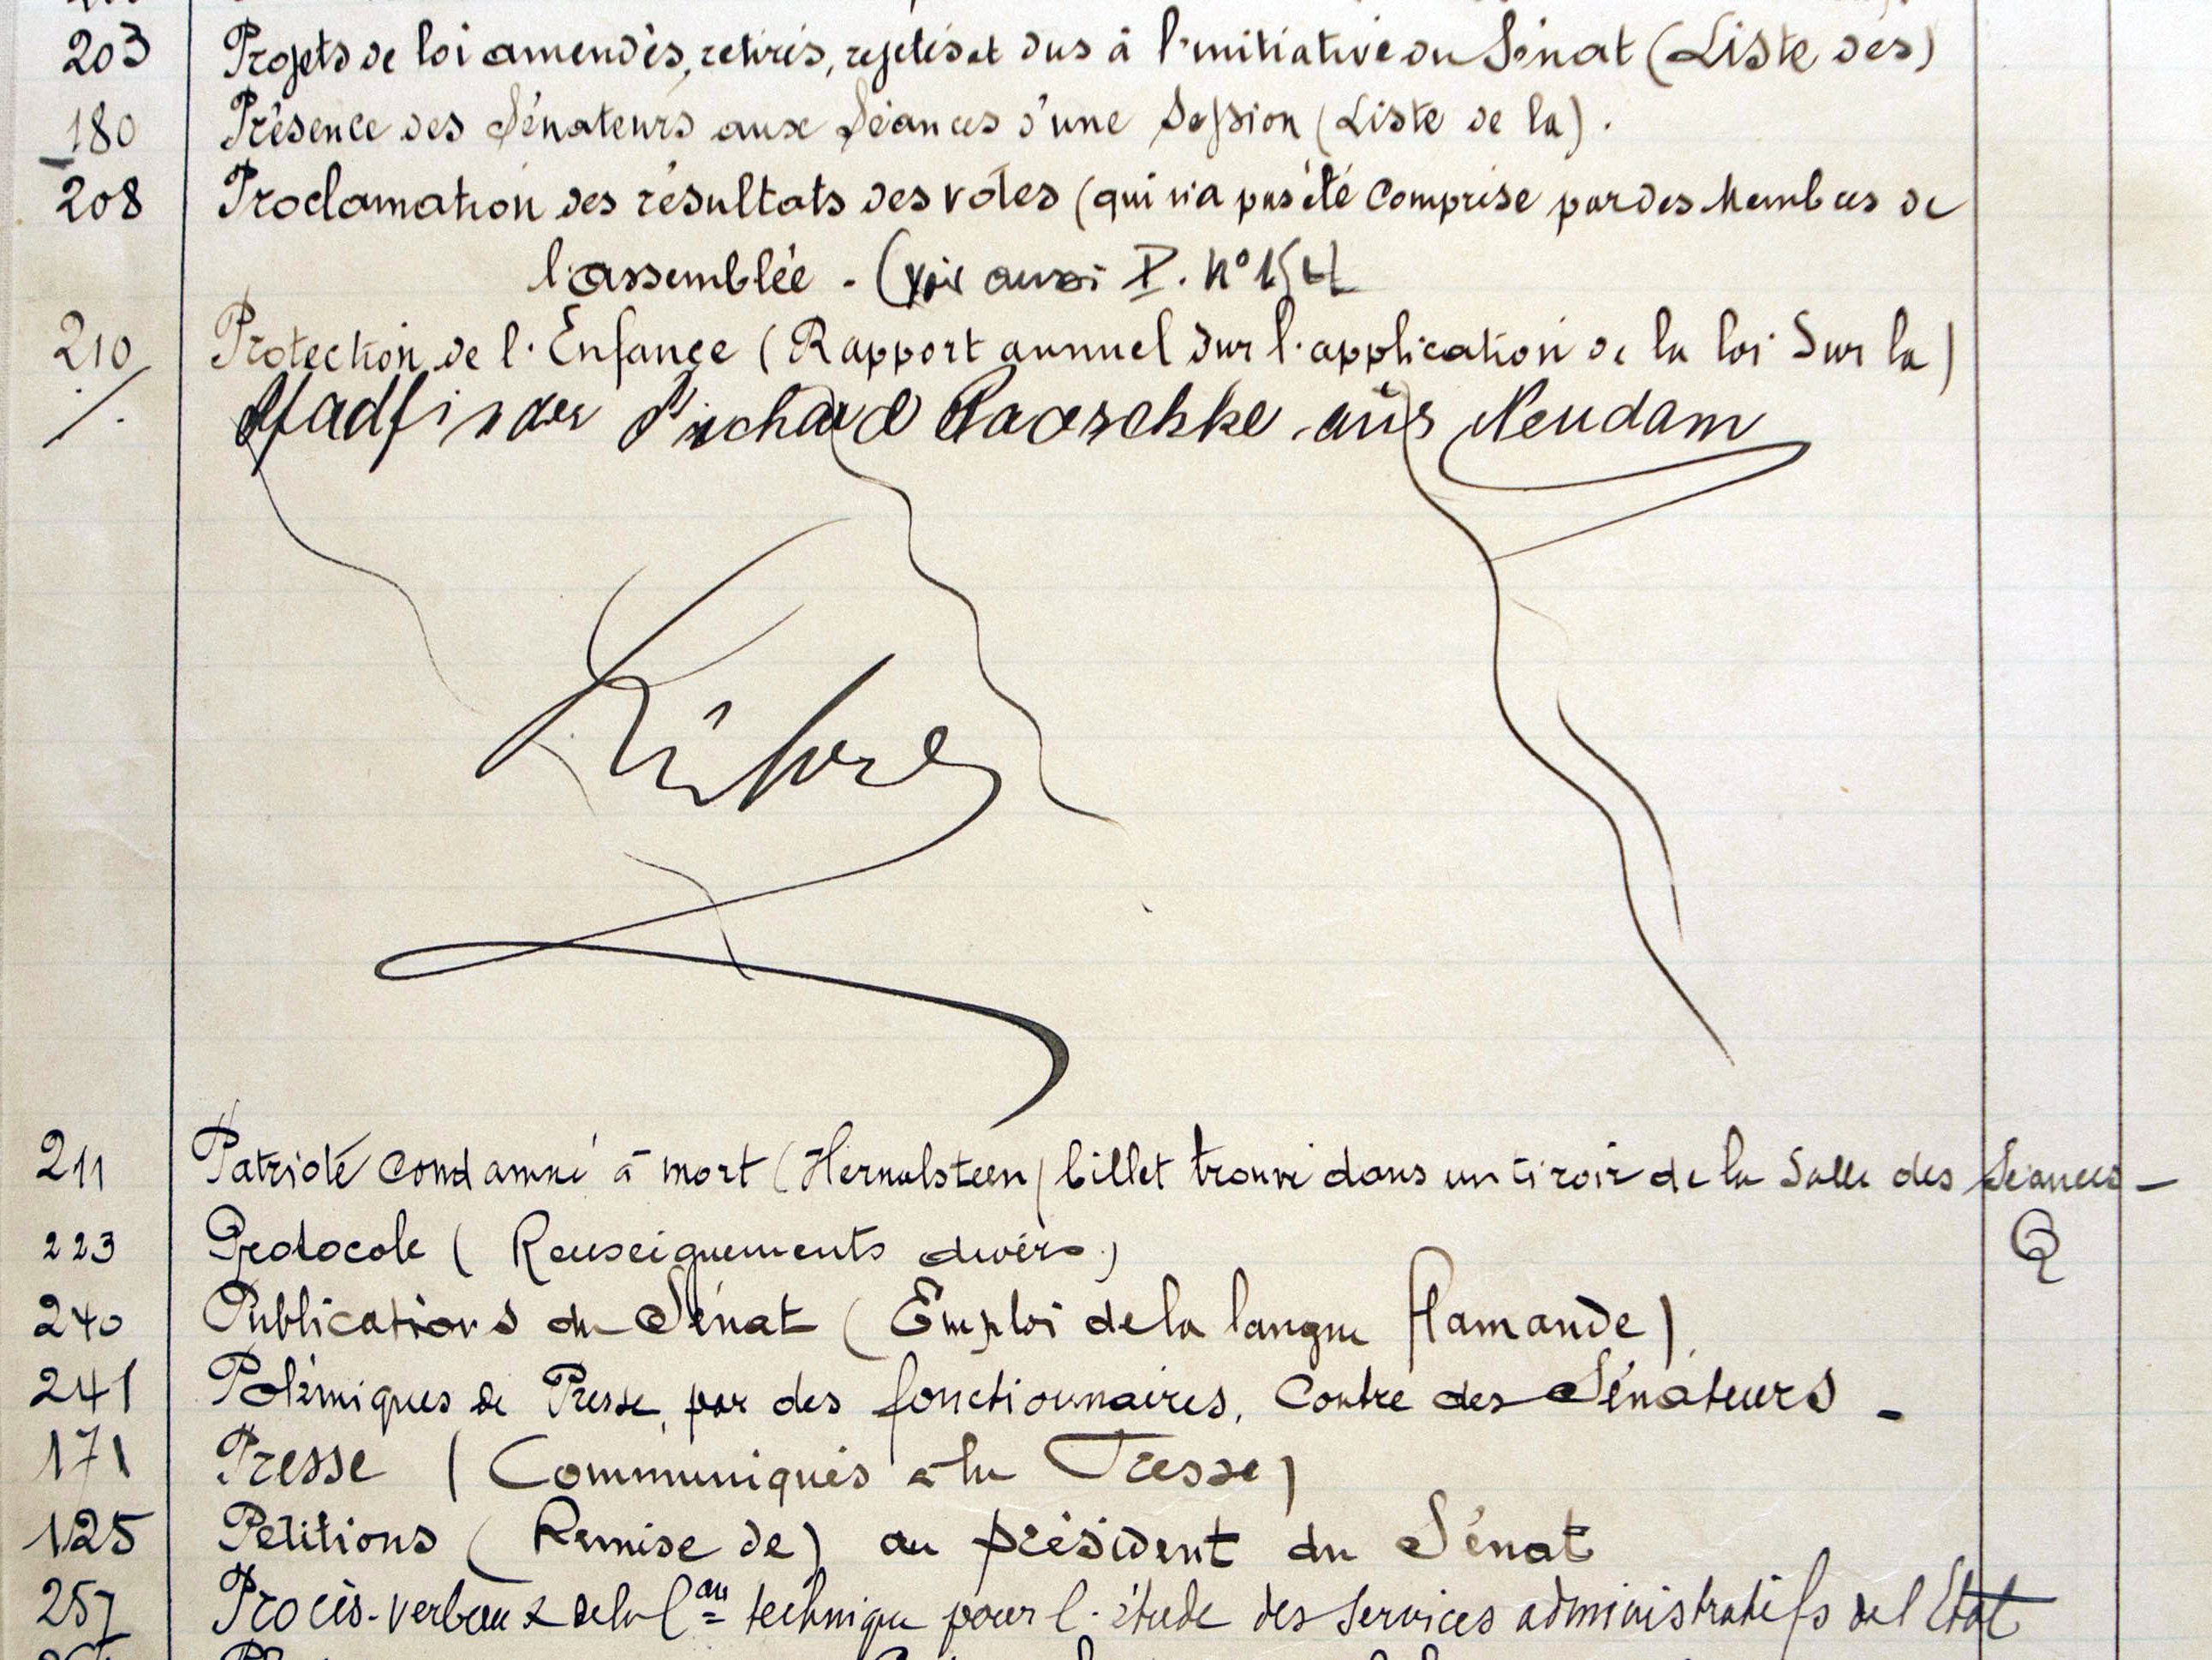 203 Projets de loi amendés, retirés, rejetés et dus à l'initiative du Sénat (Liste des)
180 Présence des Sénateurs aux Séances d'une Session (Liste de la).
208 Proclamation des résultats des votes (qui n'a pas été comprise par des Membres de
l'assemblée - (voir aussi P. N° 154
210 Protection de l'Enfance (Rapport annuel sur l'application de la loi sur la)
Pfadfinder Richard Paeschke aus Neudam
211 Patriote condamné à mort (Hernalsteen) billet trouvé dans un tiroir de la Salle des Séances -
223 Protocole (Renseignements divers)
Q
240 Publications du Sénat (Emploi de la langue flamande)
241 Polémiques de Presse, par des fonctionnaires, contre des Sénateurs -
171 Presse (Communiqués à la Presse)
125 Pétitions (Remise de) au président du Sénat
257 Procès-verbaux de la Con technique pour l'étude des services administratifs de l'Etat